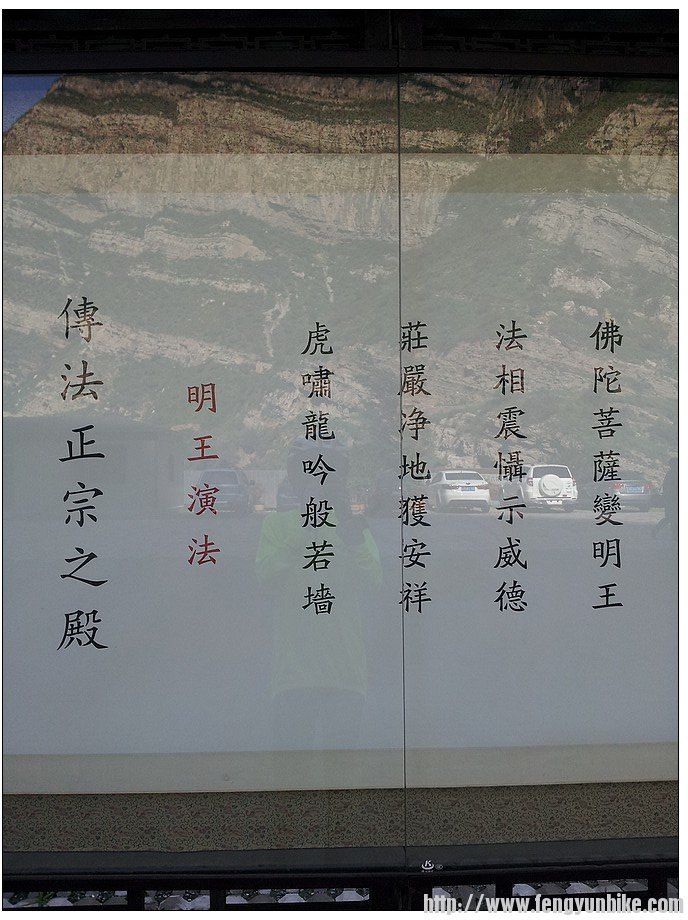 佛陀菩薩變明王
法相震懾示威德
莊嚴浄地獲安祥
虎嘯龍吟般若墙
明王演法
傳法正宗之殿
http://www.fengyunhike.com